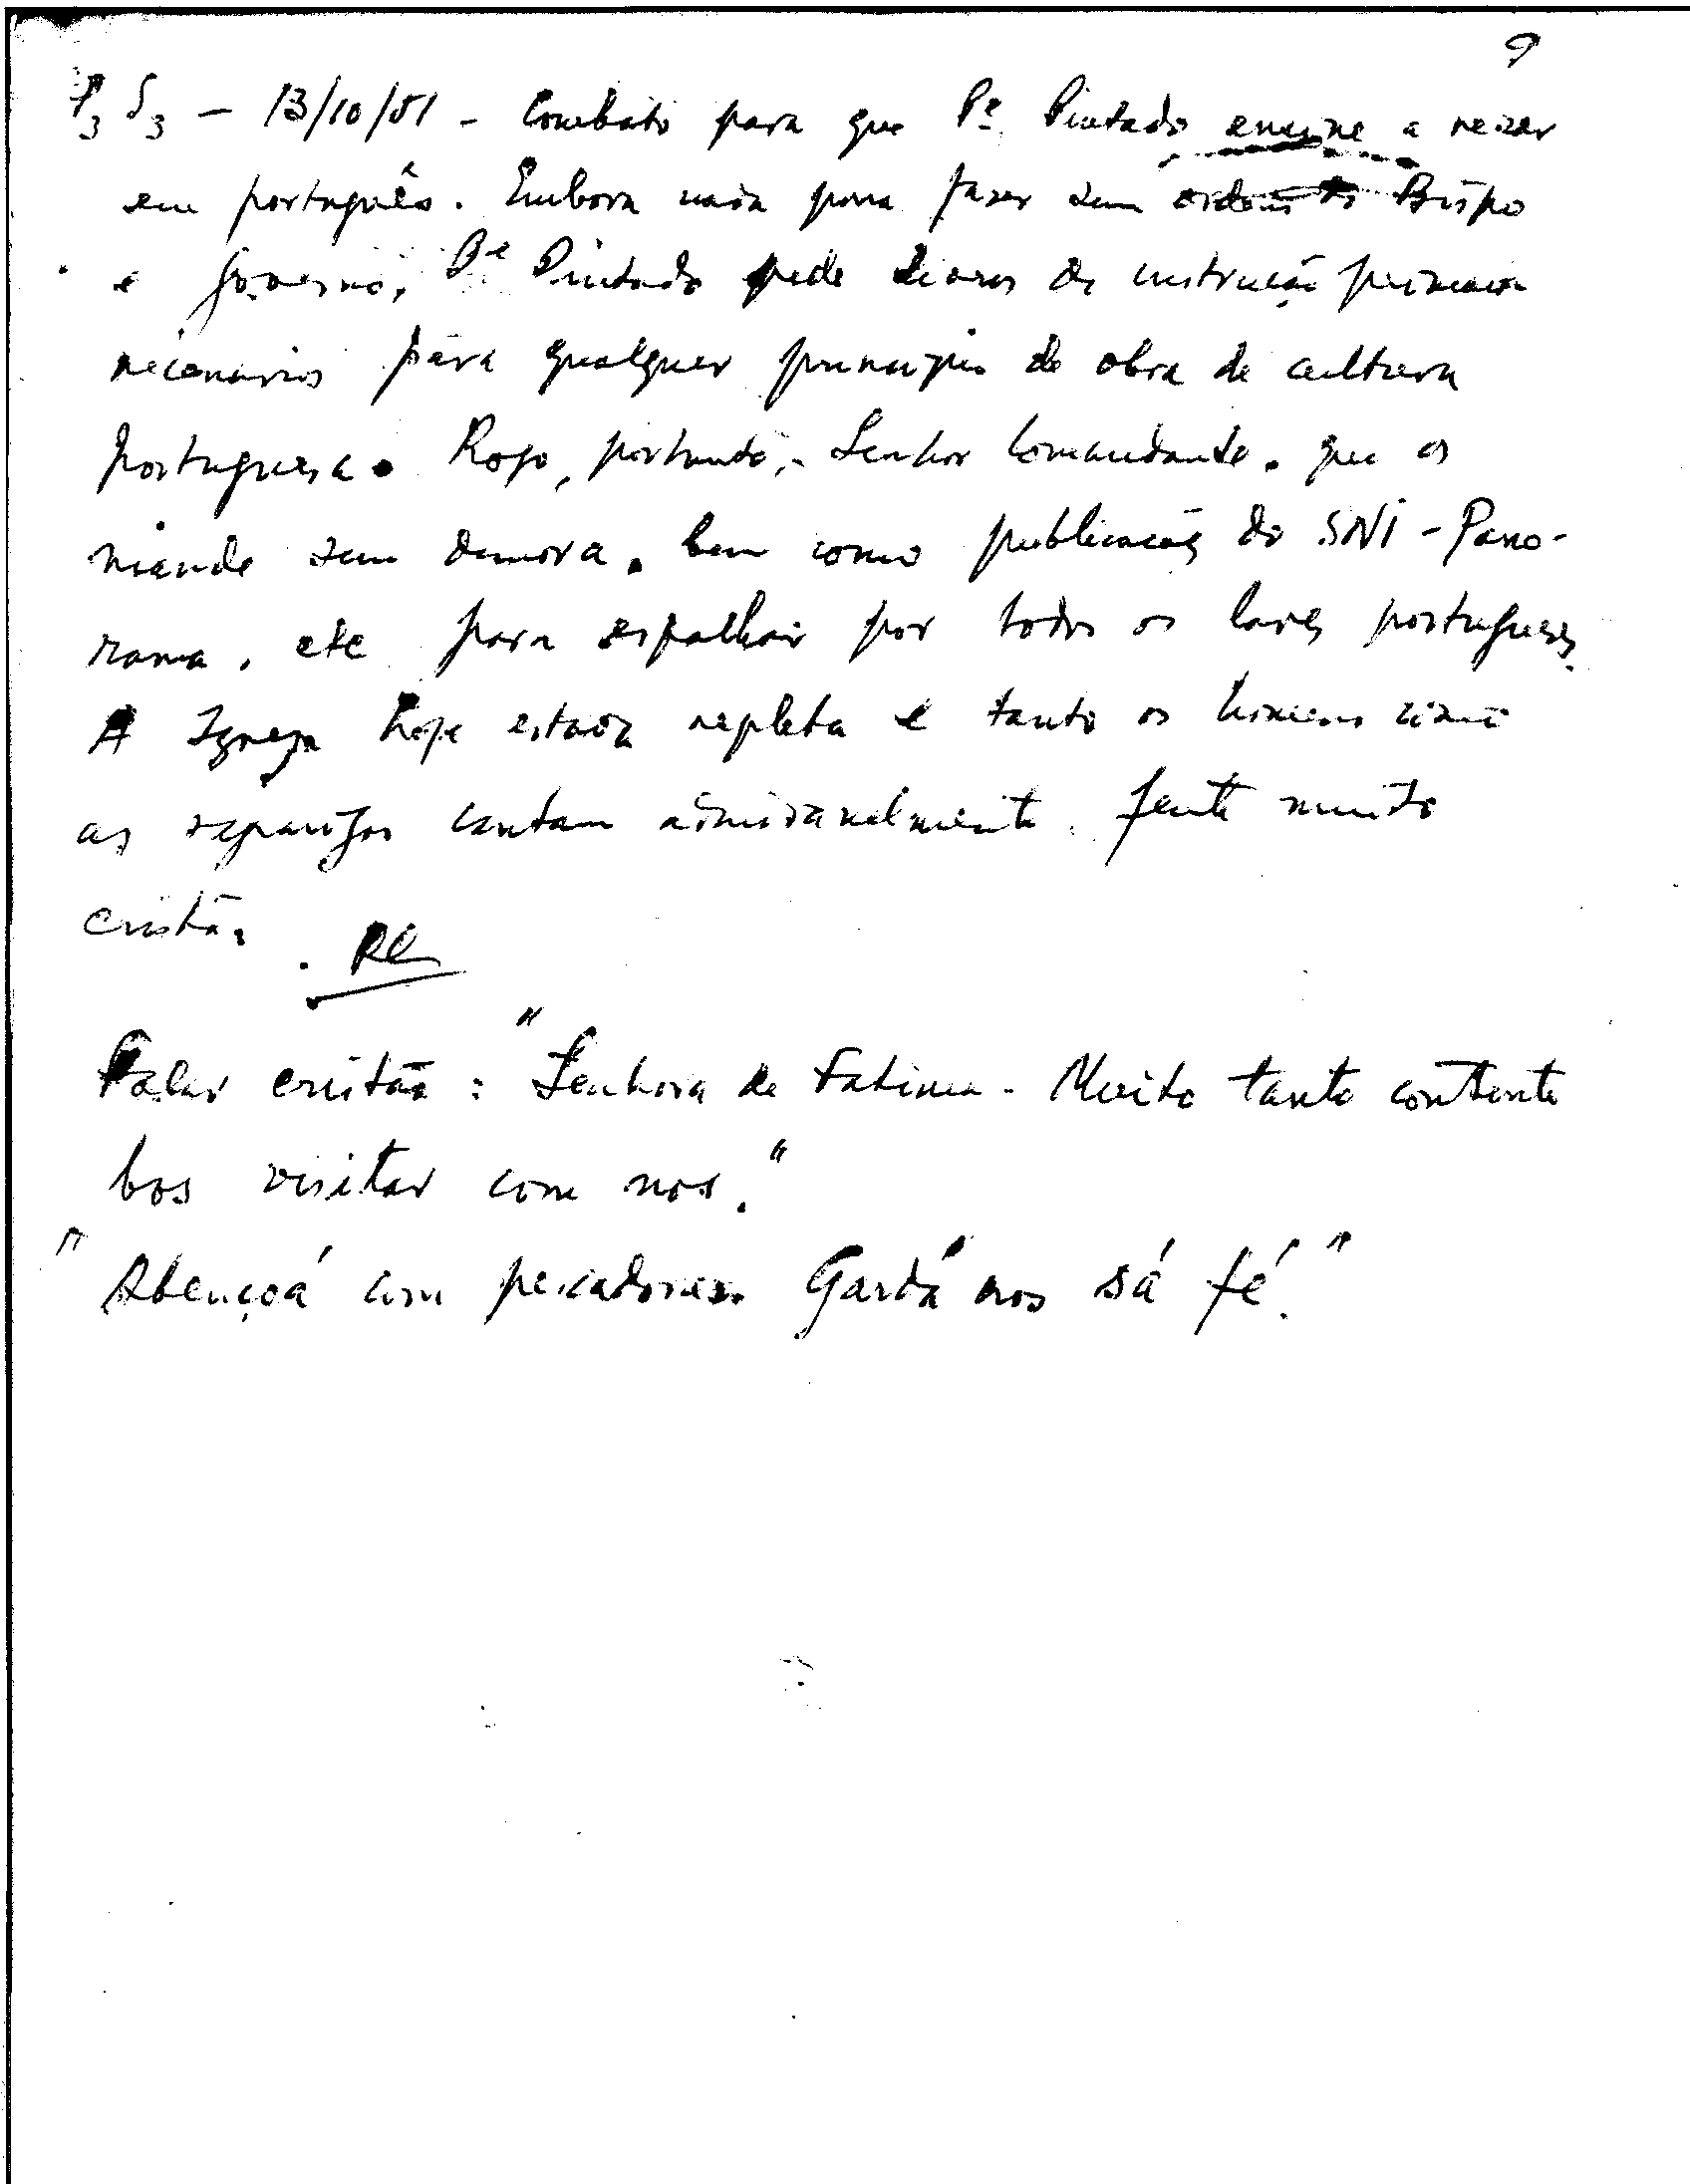 9
P3 S3 - 13/10/51 - Combato para que Pe. Pintado ensine a rezar
em português. Embora nada possa fazer sem ordem do Bispo
e governo, Pe. Pintado pede livros de instrução primaria
necessarios para qualquer principio de obra de cultura
portuguesa. Rogo, portanto, Senhor Comandante, que os
mande sem demora, bem como publicações do SNI - Pano-
rama, etc para espalhar por todos os lares portugueses.
A Igreja hoje estava repleta e tanto os homens como
as raparigas cantam admiravelmente. Gente muito
cristã.
RC
Falar cristão: "Senhora de Fatima - Muito tanto contente
bos visitar com nos."
"Abençoá com pescadores. Gardá nos sá fé."